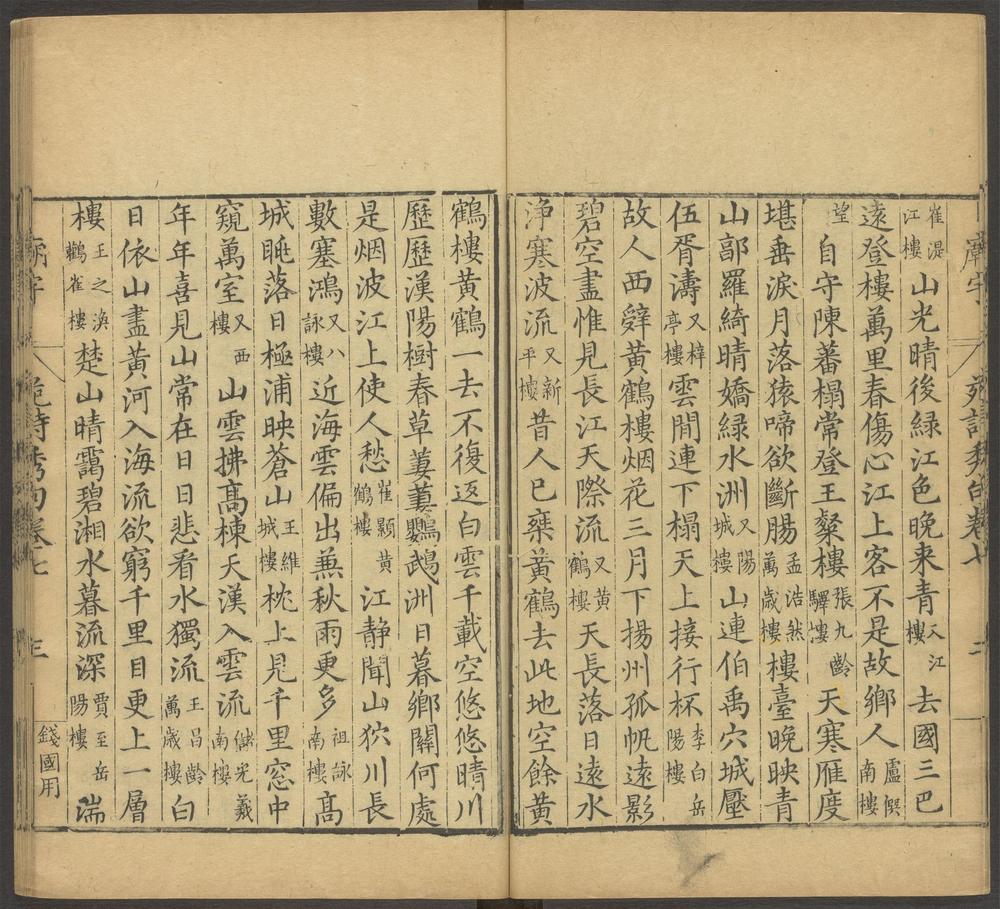 廟宇 卷七 二
崔湜江樓山光晴後緑江色晚来青又江樓去國三巴
遠登樓萬里春傷心江上客不是故鄉人盧僎南樓
望自守陳蕃榻常登王粲樓張九齡驛樓天寒雁度
堪垂淚月落猿啼欲斷腸孟浩然萬歲樓樓臺晚映青
山郭羅綺晴嬌緑水洲又陽城樓山連伯禹穴城壓
伍胥濤又梓亭樓雲間連下榻天上接行杯李白岳陽樓
故人西辤黄鶴樓烟花三月下揚州孤帆遠影
碧空盡惟見長江天際流又黄鶴樓天長落日遠水
浄塞波流又新平樓昔人已棄黄鶴去此地空餘黄
鶴樓黄鶴一去不復返白雲千載空悠悠晴川
歷歷漢陽樹春草萋萋鸚鵡洲日暮鄉關何處
是烟波江上使人愁崔顥黄鶴樓江静聞山狖川長
數塞鴻又八詠樓近海雲偏出蕪秋雨更多祖詠南樓髙
城眺落日極浦映蒼山王維城樓枕上見千里窓中
窺萬室又西樓山雲拂髙棟天漢入雲流儲光羲南樓
年年喜見山常在日日悲看水獨流王昌齡萬歲樓白
日依山盡黄河入海流欲窮千里目更上一層
樓王之渙鸛雀樓楚山晴靄碧湘水暮流深賈至岳陽樓湍
廟宇 詩秀句卷七 三 錢國用